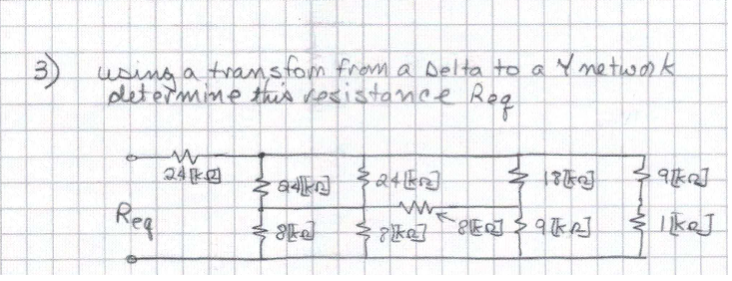 3) using a transfom from a Delta to a Y netwok
determine this resistance Req
24[kΩ] 24[kΩ] 24[kΩ] 18[kΩ] 9[kΩ]
Req 8[kΩ] 8[kΩ] 9[kΩ] 1[kΩ]